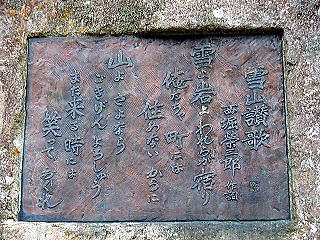 雪山讃歌
西堀栄三郎 作詞
雪よ岩よわれ等が宿り
俺たちゃ 町には
住めないからに
山よさよなら
ごきげんよろしゅう
また来る時には
笑っておくれ